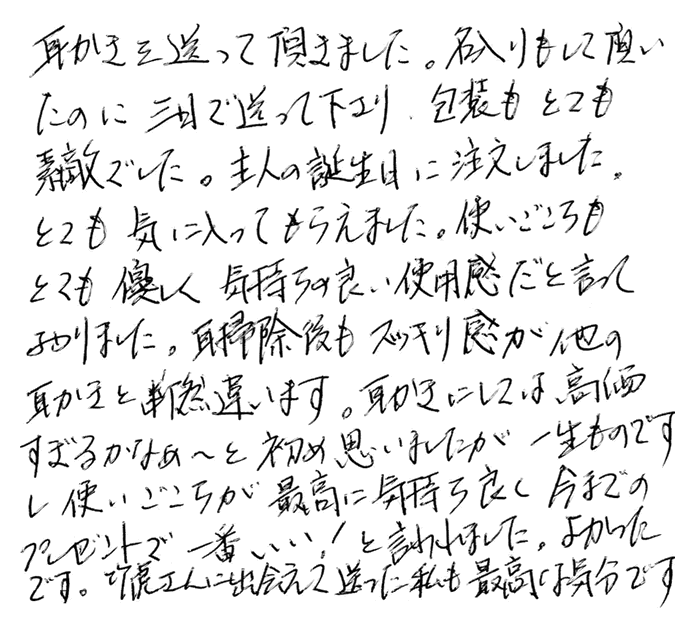 耳かきを送って頂きました。名入りもして頂い
たのに 三日で送って下さり、包装も とても
素敵でした。主人の誕生日に注文しました。
とても 気に入ってもらえました。使いごこちも
とても 優しく 気持ちの良い使用感だと言って
おりました。耳掃除後も スッキリ感が 他の
耳かきと断然違います。耳かきにしては高価
すぎるかなぁ〜と 初め思いましたが 一生ものです
し 使いごこちが 最高に気持ち良く 今までの
プレゼントで 一番 いい！と言われました。よかった
です。匠さんに出会えて送った私も最高な気分です